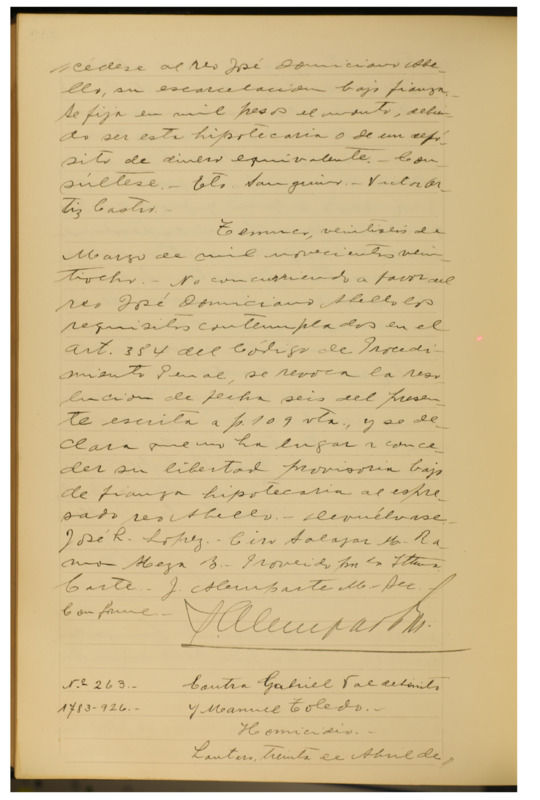 cédese al reo José Domiciano Abe-
llo, su escarcelación bajo fianza.-
Se fija en mil pesos el monto, debien-
do ser esta hipotecaria o de un depó-
sito de dinero equivalente.- Con-
súltese.- Eto. Sanguino.- Victor Or-
tiz Castro.-
Temuco, veintiseis de
Marzo de mil novecientos vein-
tiocho.- No concurriendo a favor del
reo José Domiciano Abello los
requisitos contemplados en el
art. 384 del Código de Procedi-
miento Penal, se revoca la reso-
lucion de fecha seis del presen-
te escrita a f. 109 vta., y se de-
clara que no ha lugar a conce-
der su libertad provisoria bajo
de fianza hipotecaria al espre-
sado reo Abello.- Devuélvase.-
José R. Lopez.- Ciro Salazar M.- Ra-
mon Meza B.- Proveido por la Iltma
Corte.- J. Alemparte M.- Sec.
Conforme.-
J. Alemparte M.
N.º 263.- Contra Gabriel Valdebenito
1783-926.- y Manuel Toledo.-
Homicidio.-
Lautaro, treinta de Abril de